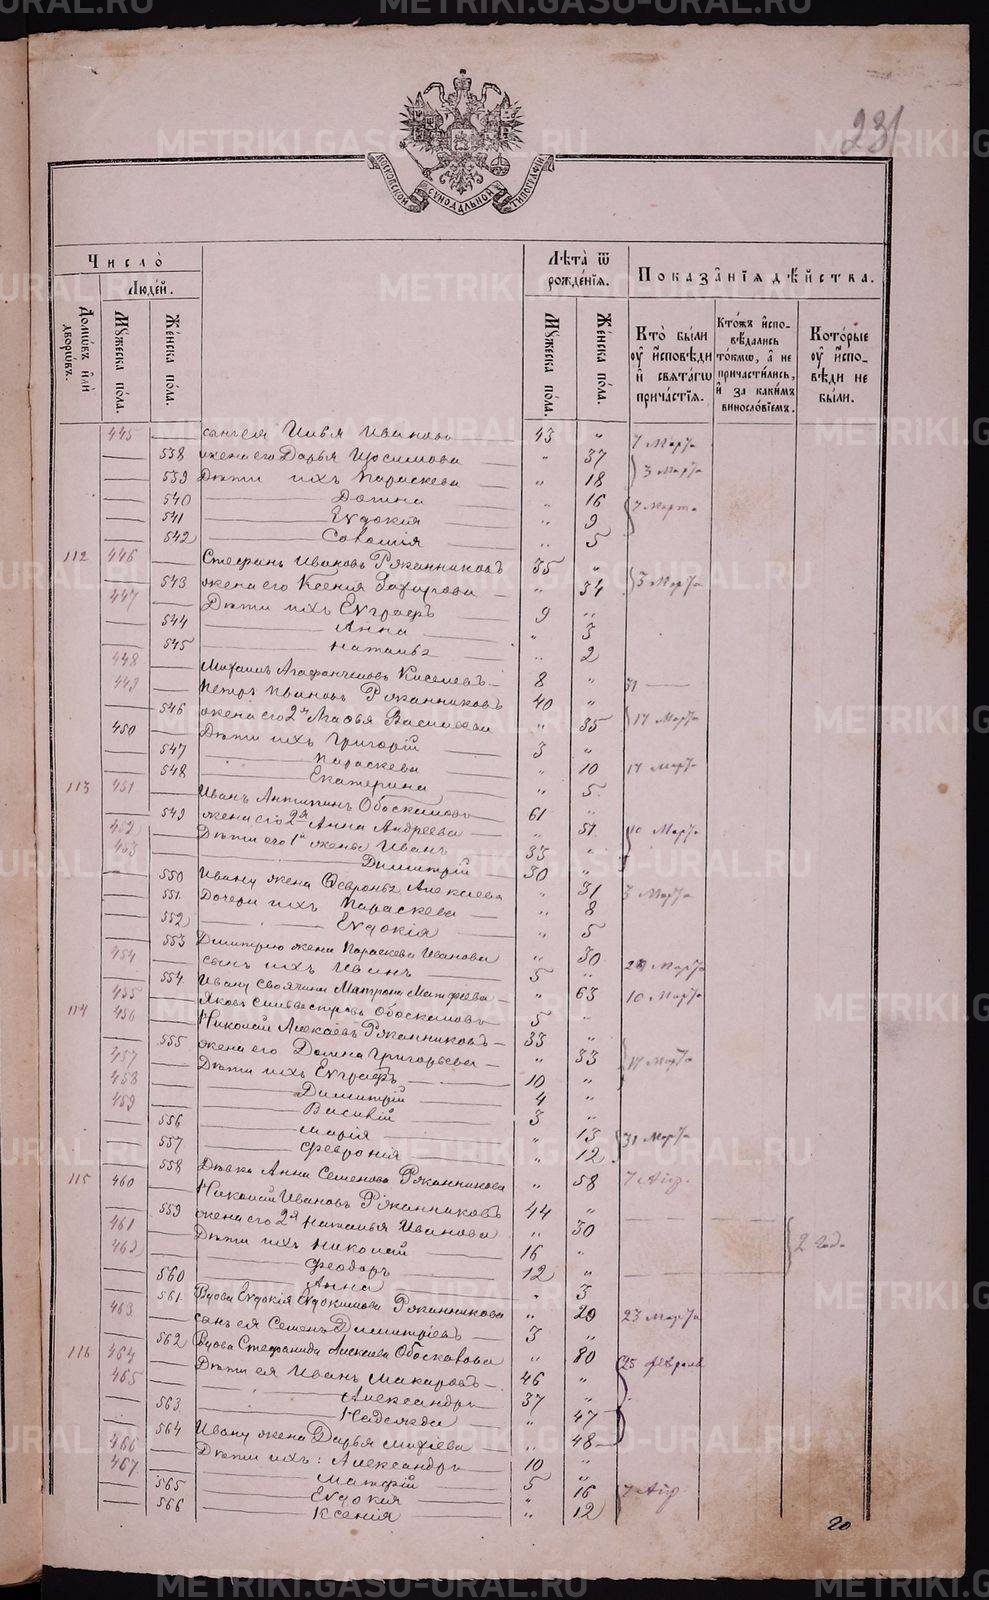 231
МОСКОВСКОЙ СѴНОДАЛЬНОЙ ТИПОГРАФІИ
Число̀
Людéй.
Домѡ́въ и҆лѝ дворѡ́въ.
Мꙋ́жеска по́ла.
Же́нска по́ла.
Лѣ́та ѿ рожде́нїѧ.
Мꙋ́жеска по́ла.
Же́нска по́ла.
Показа̂нїѧ дѣ́йства.
Кто̀ бы́ли ᲂу҆ и҆сповѣди и҆ свѧта́гѡ прича́стїѧ.
Кто́жъ и҆спо-вѣ́дались то́кмѡ, а҆ не причасти́лись, и҆ за каки́мъ винословїемъ.
Кото́рые ᲂу҆ и҆спо-вѣди не бы́ли.
445 сынъ ея Иванъ Ивановъ 43 " 7 Марта
538 жена его Дарья Зосимова " 37 3 Марта
539 Дѣти ихъ Параскева " 18
540 Домна " 16 7 Марта
541 Евдокия " 9
542 Соломія " 5
112 446 Стефанъ Ивановъ Ряжанниковъ 35 "
543 жена его Ксения Захарова " 34 3 Марта
447 Дѣти ихъ Евграфъ 9 "
544 Анна " 3
545 Наталья " 2
448 Михаилъ Агафангеловъ Киселевъ 8 " 31
449 Петръ Ивановъ Ряжанниковъ 40 "
546 жена его 2я Агафья Васильева " 35 17 Марта
450 Дѣти ихъ Григорій 3 "
547 Параскева " 10 17 Марта
548 Екатерина " 5
113 451 Иванъ Антипинъ Обоскаловъ 61 "
549 жена его 2я Анна Андреева " 51 10 Марта
452 Дѣти его 1й жены Иванъ 33 "
453 Димитрій 30 "
550 Ивану жена Февронья Алексѣева " 31 3 Марта
551 Дочери ихъ Параскева " 8
552 Евдокія " 5
553 Димитрію жена Параскева Иванова " 30 24 Марта
454 сынъ ихъ Иванъ 5 "
554 Ивану своячина Матрона Матфеева " 63 10 Марта
455 Яковъ Сильвестровъ Обоскаловъ 5 "
114 456 Николай Алексѣевъ Ряжанниковъ 33 "
555 жена его Домна Григорьева " 33 17 Марта
457 Дѣти ихъ Евграфъ 10 "
458 Димитрій 4 "
459 Василій 3 "
556 Марія " 13 31 Марта
557 Февронія " 12
558 Дѣвка Анна Семенова Ряжанникова " 58 7 Апр.
115 460 Николай Ивановъ Ряжанниковъ 44 "
559 жена его 2я Наталья Иванова " 30
461 Дѣти ихъ Николай 16 " 2 года
462 Феодоръ 12 "
560 Анна " 3
561 Вдова Евдокія Евдокимова Ряжанникова " 20 23 Марта
463 сынъ ея Семенъ Димитріевъ 3 "
562 Вдова Стефанида Алексѣева Обоскалова " 80 25 февраля
116 464 Дѣти ея Иванъ Макаровъ 46 "
465 Александръ 37 "
563 Надежда " 47
564 Ивану жена Дарья Михѣева " 48
466 Дѣти ихъ: Александръ 10 "
467 Матфій 5 "
565 Евдокия " 16 7 Апр.
566 Ксения " 12
20